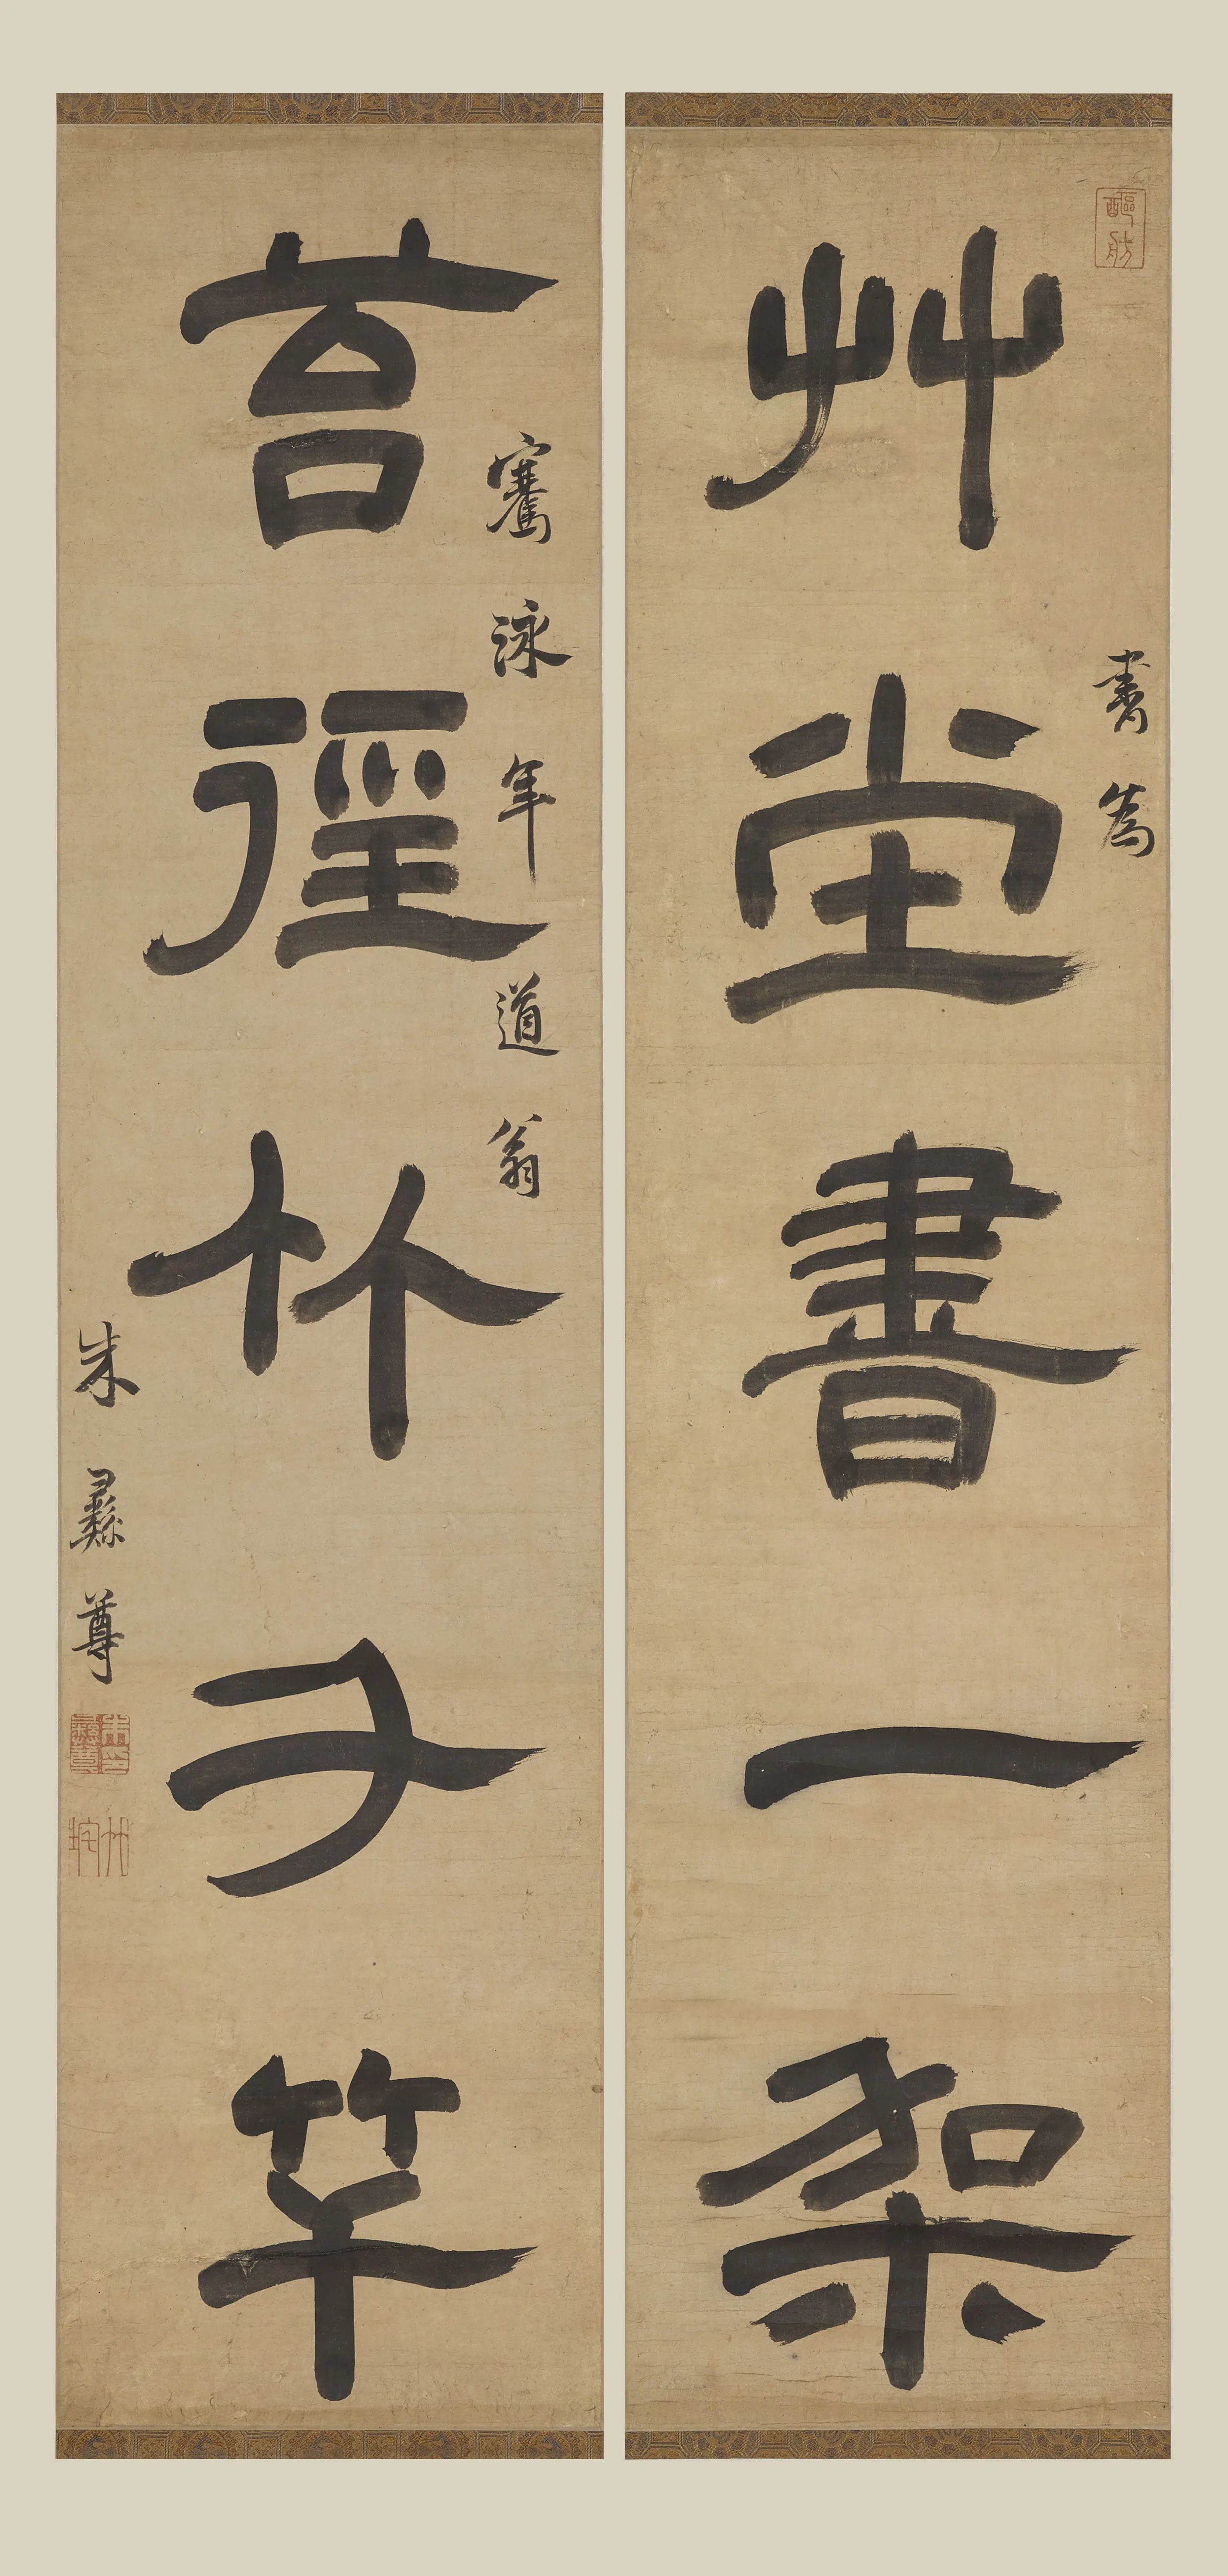 艸堂書一架
書為
騫泳年道翁
苔徑竹千竿
朱彝尊
朱彝尊印
竹垞